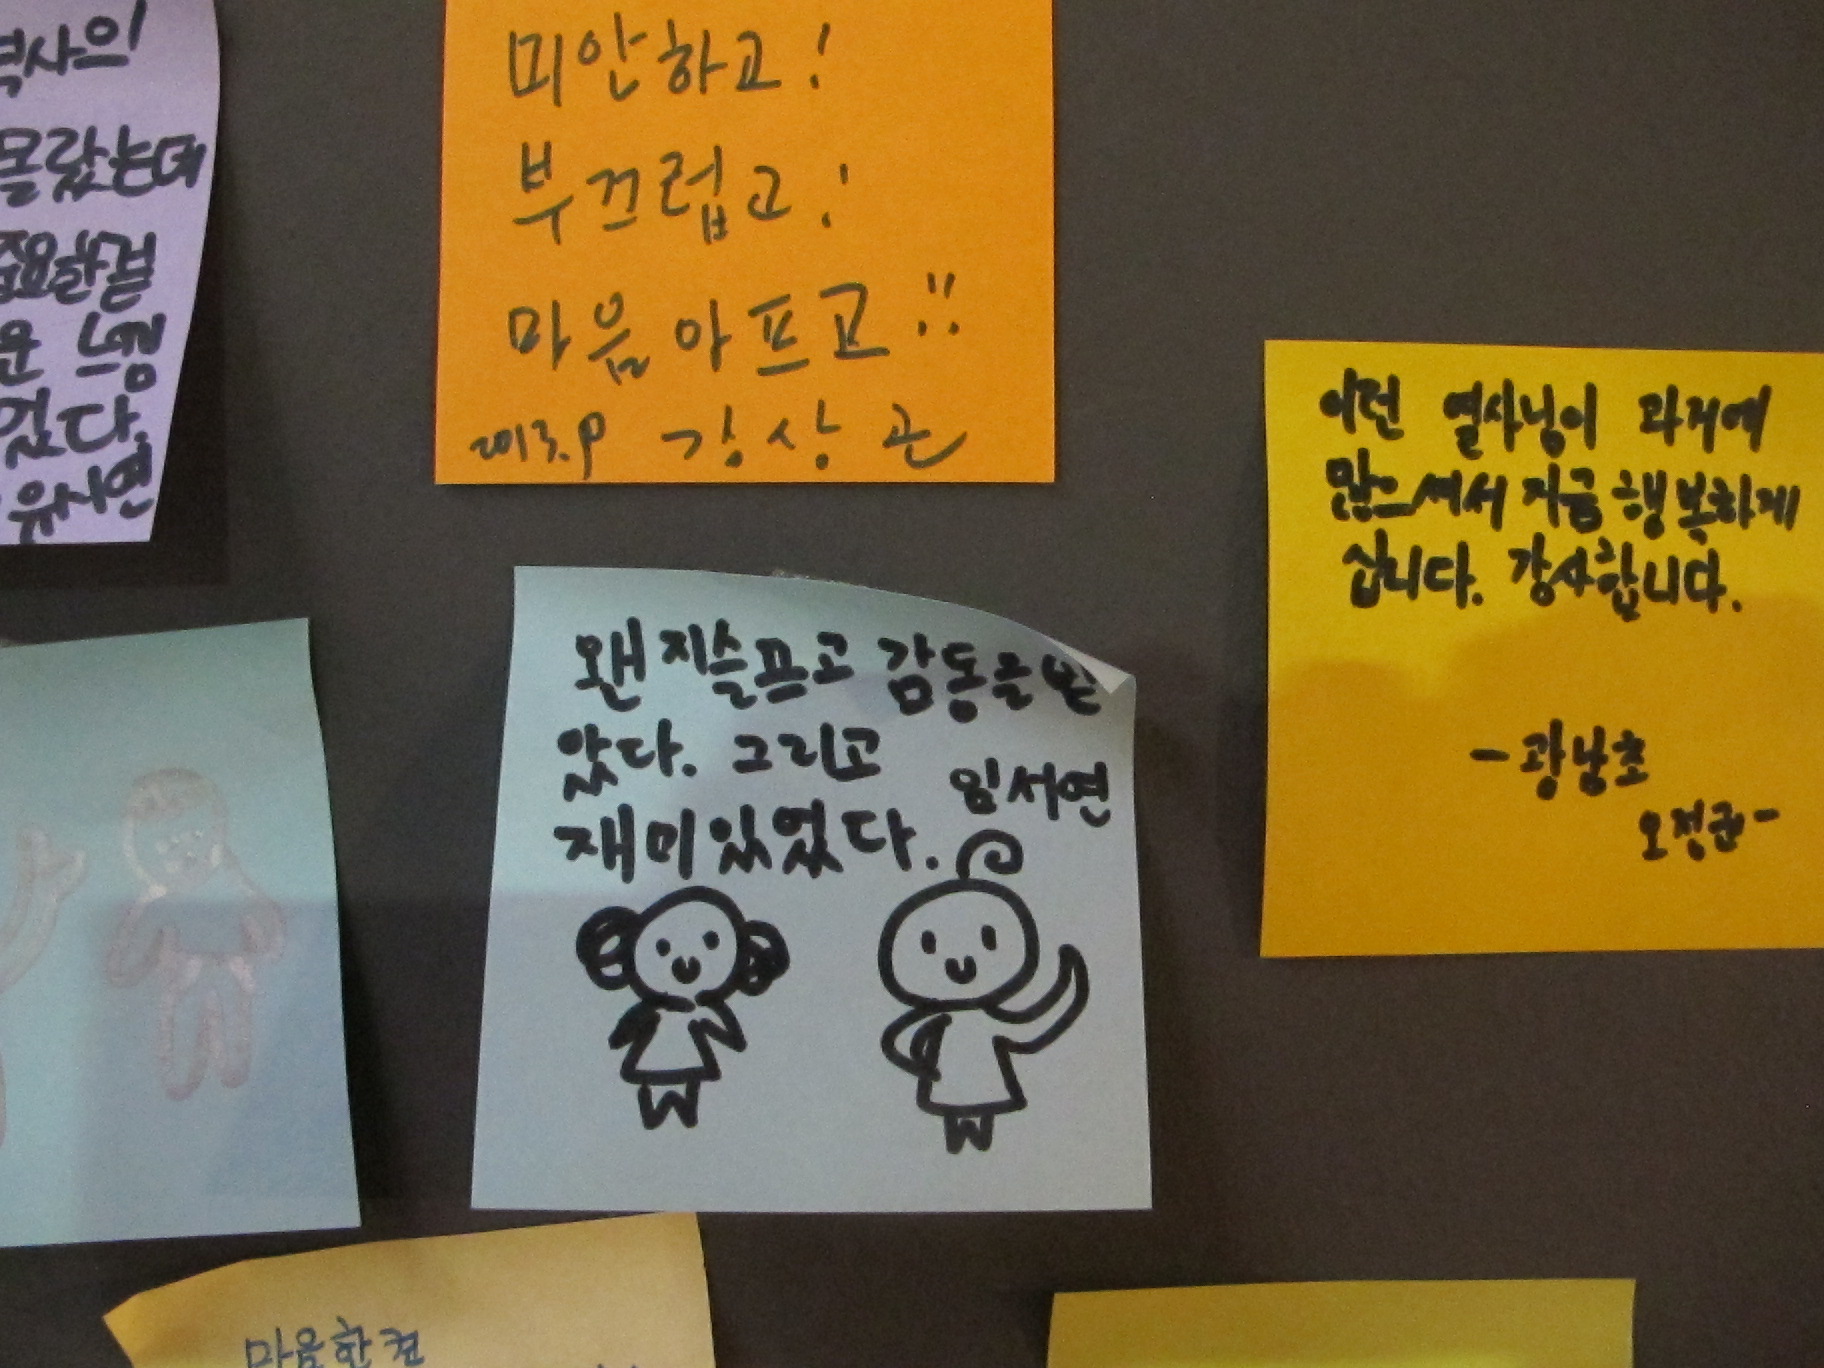 역사의
몰랐는데
중요한걸
운 느낌
었다.
유시연
미안하고!
부끄럽고!
마음아프고!!
2013.9 강상관
이런 열사님이 과거에
많으셔서 지금 행복하게
삽니다. 감사합니다.
-광남초
오정균-
왠지슬프고 감동을 받
았다. 그리고
임서연
재미있었다.
마음한켠